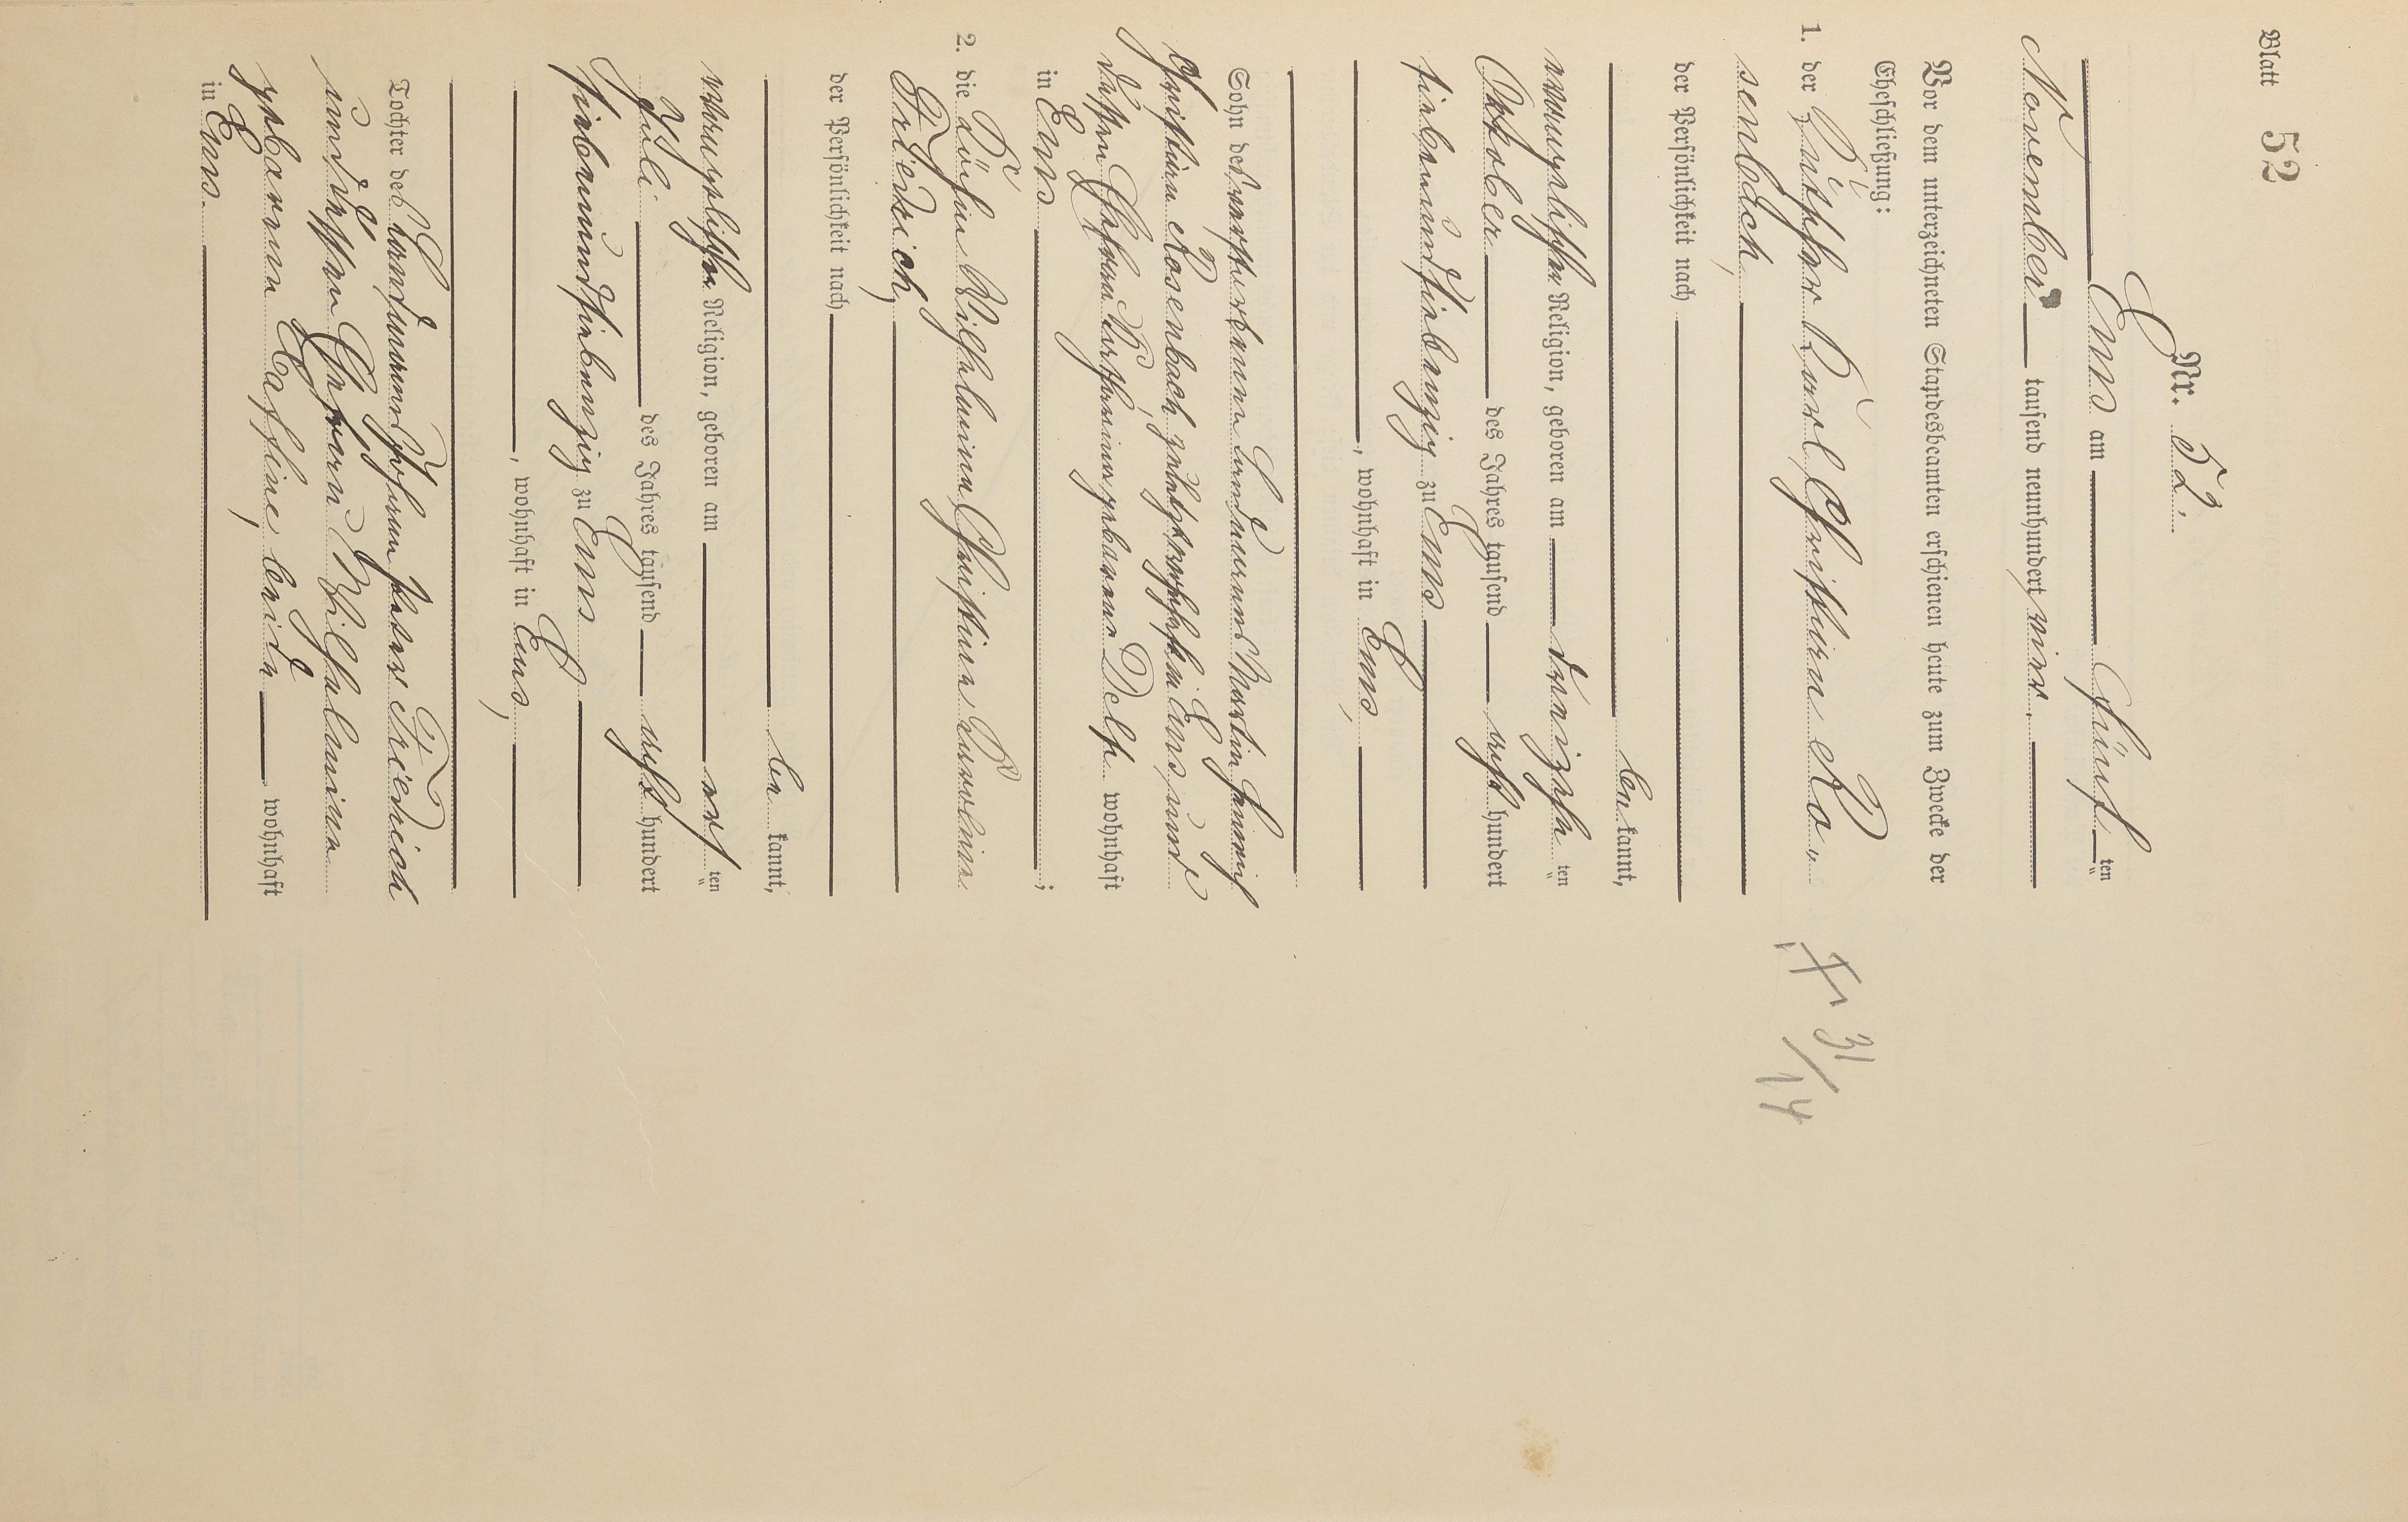 Blatt 52
Nr. 52.
Ems am fünften
November tausend neunhundert vier.
Vor dem unterzeichneten Standesbeamten erschienen heute zum Zwecke der
Eheschließung:
1. der Küfer Karl Christian Ro-
senbach,
der Persönlichkeit nach
bekannt,
evangelischer Religion, geboren am dreizehnten
Oktober des Jahres tausend achthundert
siebenundsiebenzig zu Ems
, wohnhaft in Ems,
Sohn des verstorbenen Landmanns
Christian Rosenbach zuletzt wohnhaft in Ems, und
dessen Ehefrau Katharine geborene wohnhaft
in Ems;
2. die Wilhelmine Christiane Karoline
Friedrich,
der Persönlichkeit nach
bekannt,
evangelischer Religion, geboren am achten
Juli des Jahres tausend achthundert
siebenundsiebenzig zu Ems
, wohnhaft in Ems,
Tochter des Friedrich
und dessen Ehefrau Wilhelmine
geborene beide wohnhaft
in Ems.
31/14